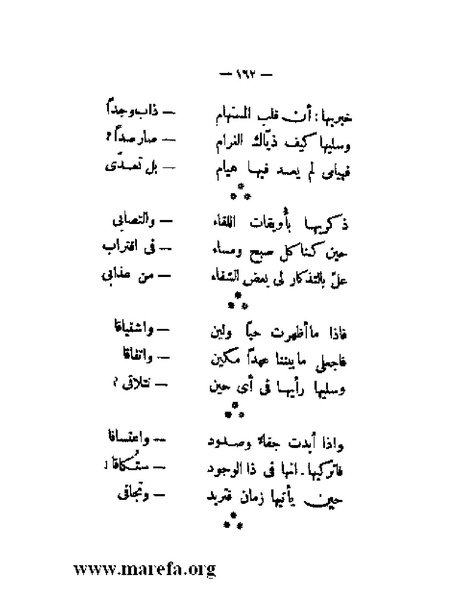 — ١٦٢ —
خبريها : أن قلب المستهام — ذاب وجدًا
وسليها كيف ذيّاك الغرام — صار صدًا ؟
فهيامى لم يعد فيها هيام — بل تعدّى
⁂
ذكريها بأويقات اللقاء — والتصابى
حين كنا كل صبح ومساء — فى اقتراب
علّ بالتذكار لى بعض الشفاء — من عذابى
⁂
فاذا ما أظهرت حبًا ولين — واشتياقا
فاجعلى ما بيننا عهدًا مكين — واتفاقا
وسليها رأيها فى أى حين — نتلاقى ؟
⁂
واذا أبدت جفاءً وصدود — واعتسافا
فاتركيها . انها فى ذا الوجود — ستُكافا !
حين يأتيها زمان فتريد — وتجافى
⁂
www.marefa.org